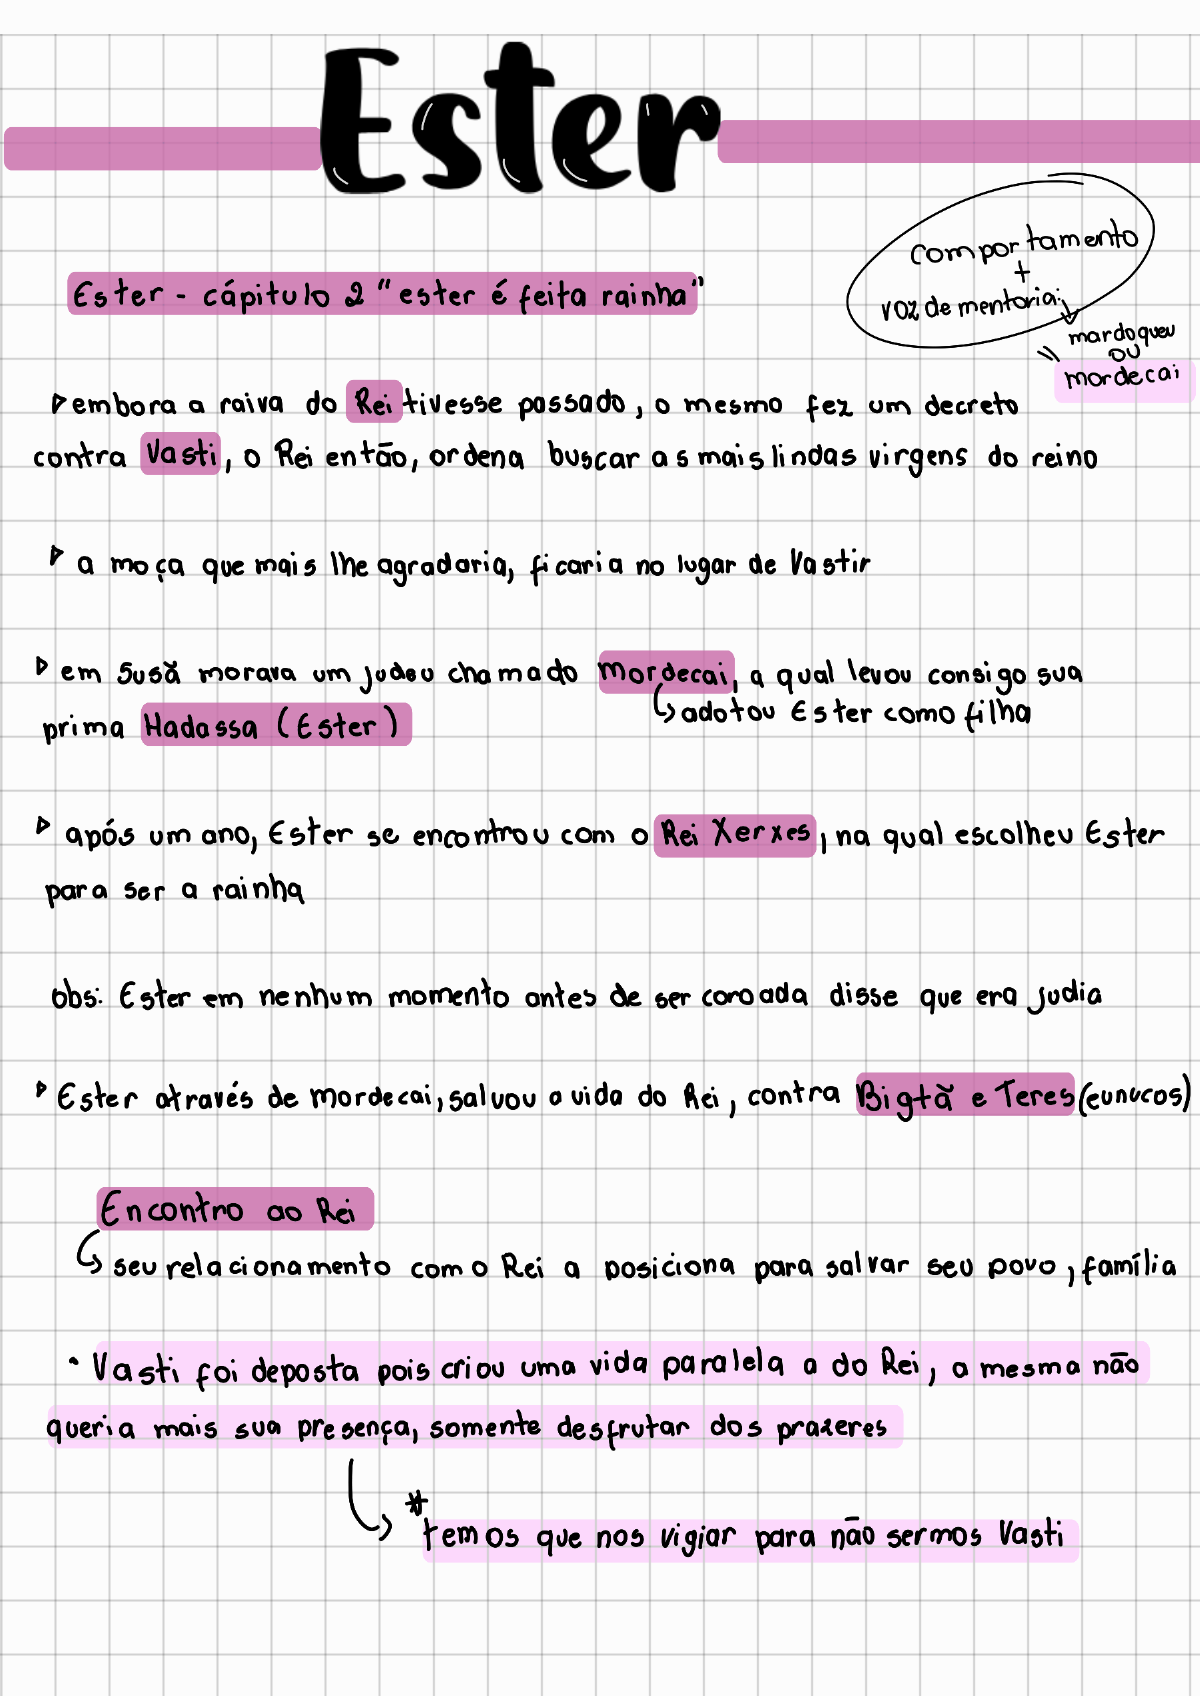 Ester
comportamento
+
voz de mentoria:
mardoqueu
ou
mordecai
Ester - cápitulo 2 "ester é feita rainha"
embora a raiva do Rei tivesse passado, o mesmo fez um decreto
contra Vasti, o Rei então, ordena buscar as mais lindas virgens do reino
a moça que mais lhe agradaria, ficaria no lugar de Vastir
em Susã morava um judeu chamado Mordecai, a qual levou consigo sua
adotou Ester como filha
prima Hadassa (Ester)
após um ano, Ester se encontrou com o Rei Xerxes, na qual escolheu Ester
para ser a rainha
obs: Ester em nenhum momento antes de ser coroada disse que era judia
Ester através de mordecai, salvou a vida do Rei, contra Bigtã e Teres (eunucos)
Encontro ao Rei
seu relacionamento com o Rei a posiciona para salvar seu povo, família
• Vasti foi deposta pois criou uma vida paralela a do Rei, a mesma não
queria mais sua presença, somente desfrutar dos prazeres
* temos que nos vigiar para não sermos Vasti